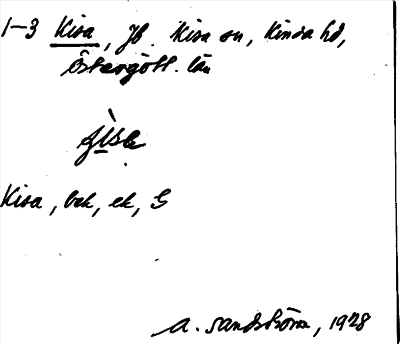 1-3 Kisa, Jb. Kisa sn, Kinda hd,
Östergötl. län
Kisa, bek, ek, G
A. Sandström, 1928